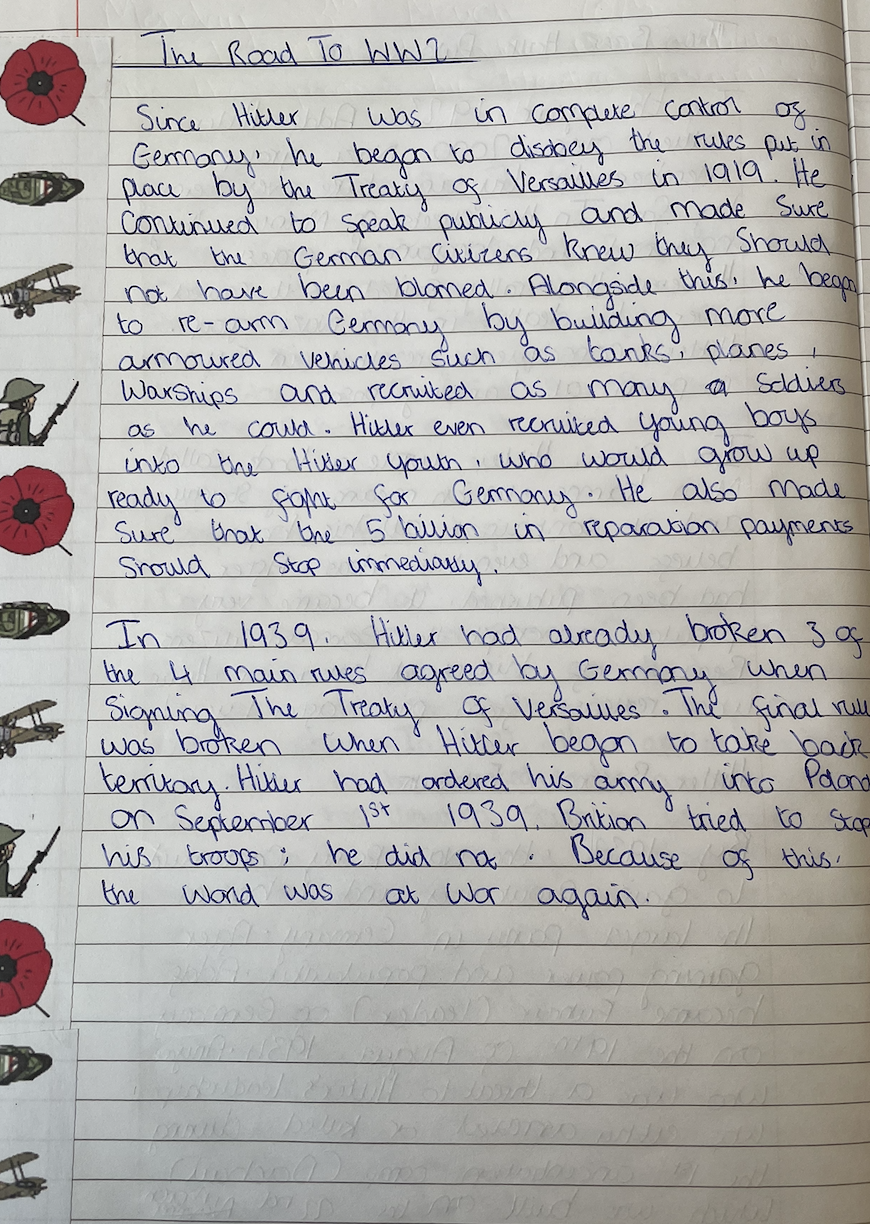 The Road To WW2
Since Hitler was in complete control of
Germany, he began to disobey the rules put in
place by the Treaty of Versailles in 1919. He
continued to speak publicly and made sure
that the German citizens knew they should
not have been blamed. Alongside this, he began
to re-arm Germany by building more
armoured vehicles such as tanks, planes,
warships and recruited as many soldiers
as he could. Hitler even recruited young boys
into the Hitler youth, who would grow up
ready to fight for Germany. He also made
sure that the 5 billion in reparation payments
should stop immediatly.
In 1939, Hitler had already broken 3 of
the 4 main rules agreed by Germany when
signing The Treaty of Versailles. The final rule
was broken when Hitler began to take back
territory. Hitler had ordered his army into Poland
on September 1st 1939. Brition tried to stop
his troops; he did not. Because of this,
the world was at war again.